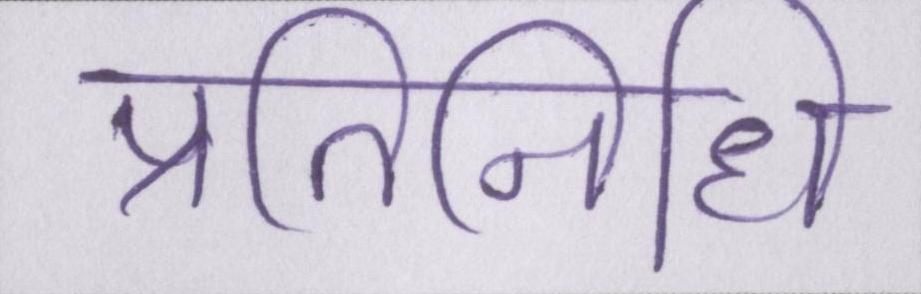 प्रतिनिधि